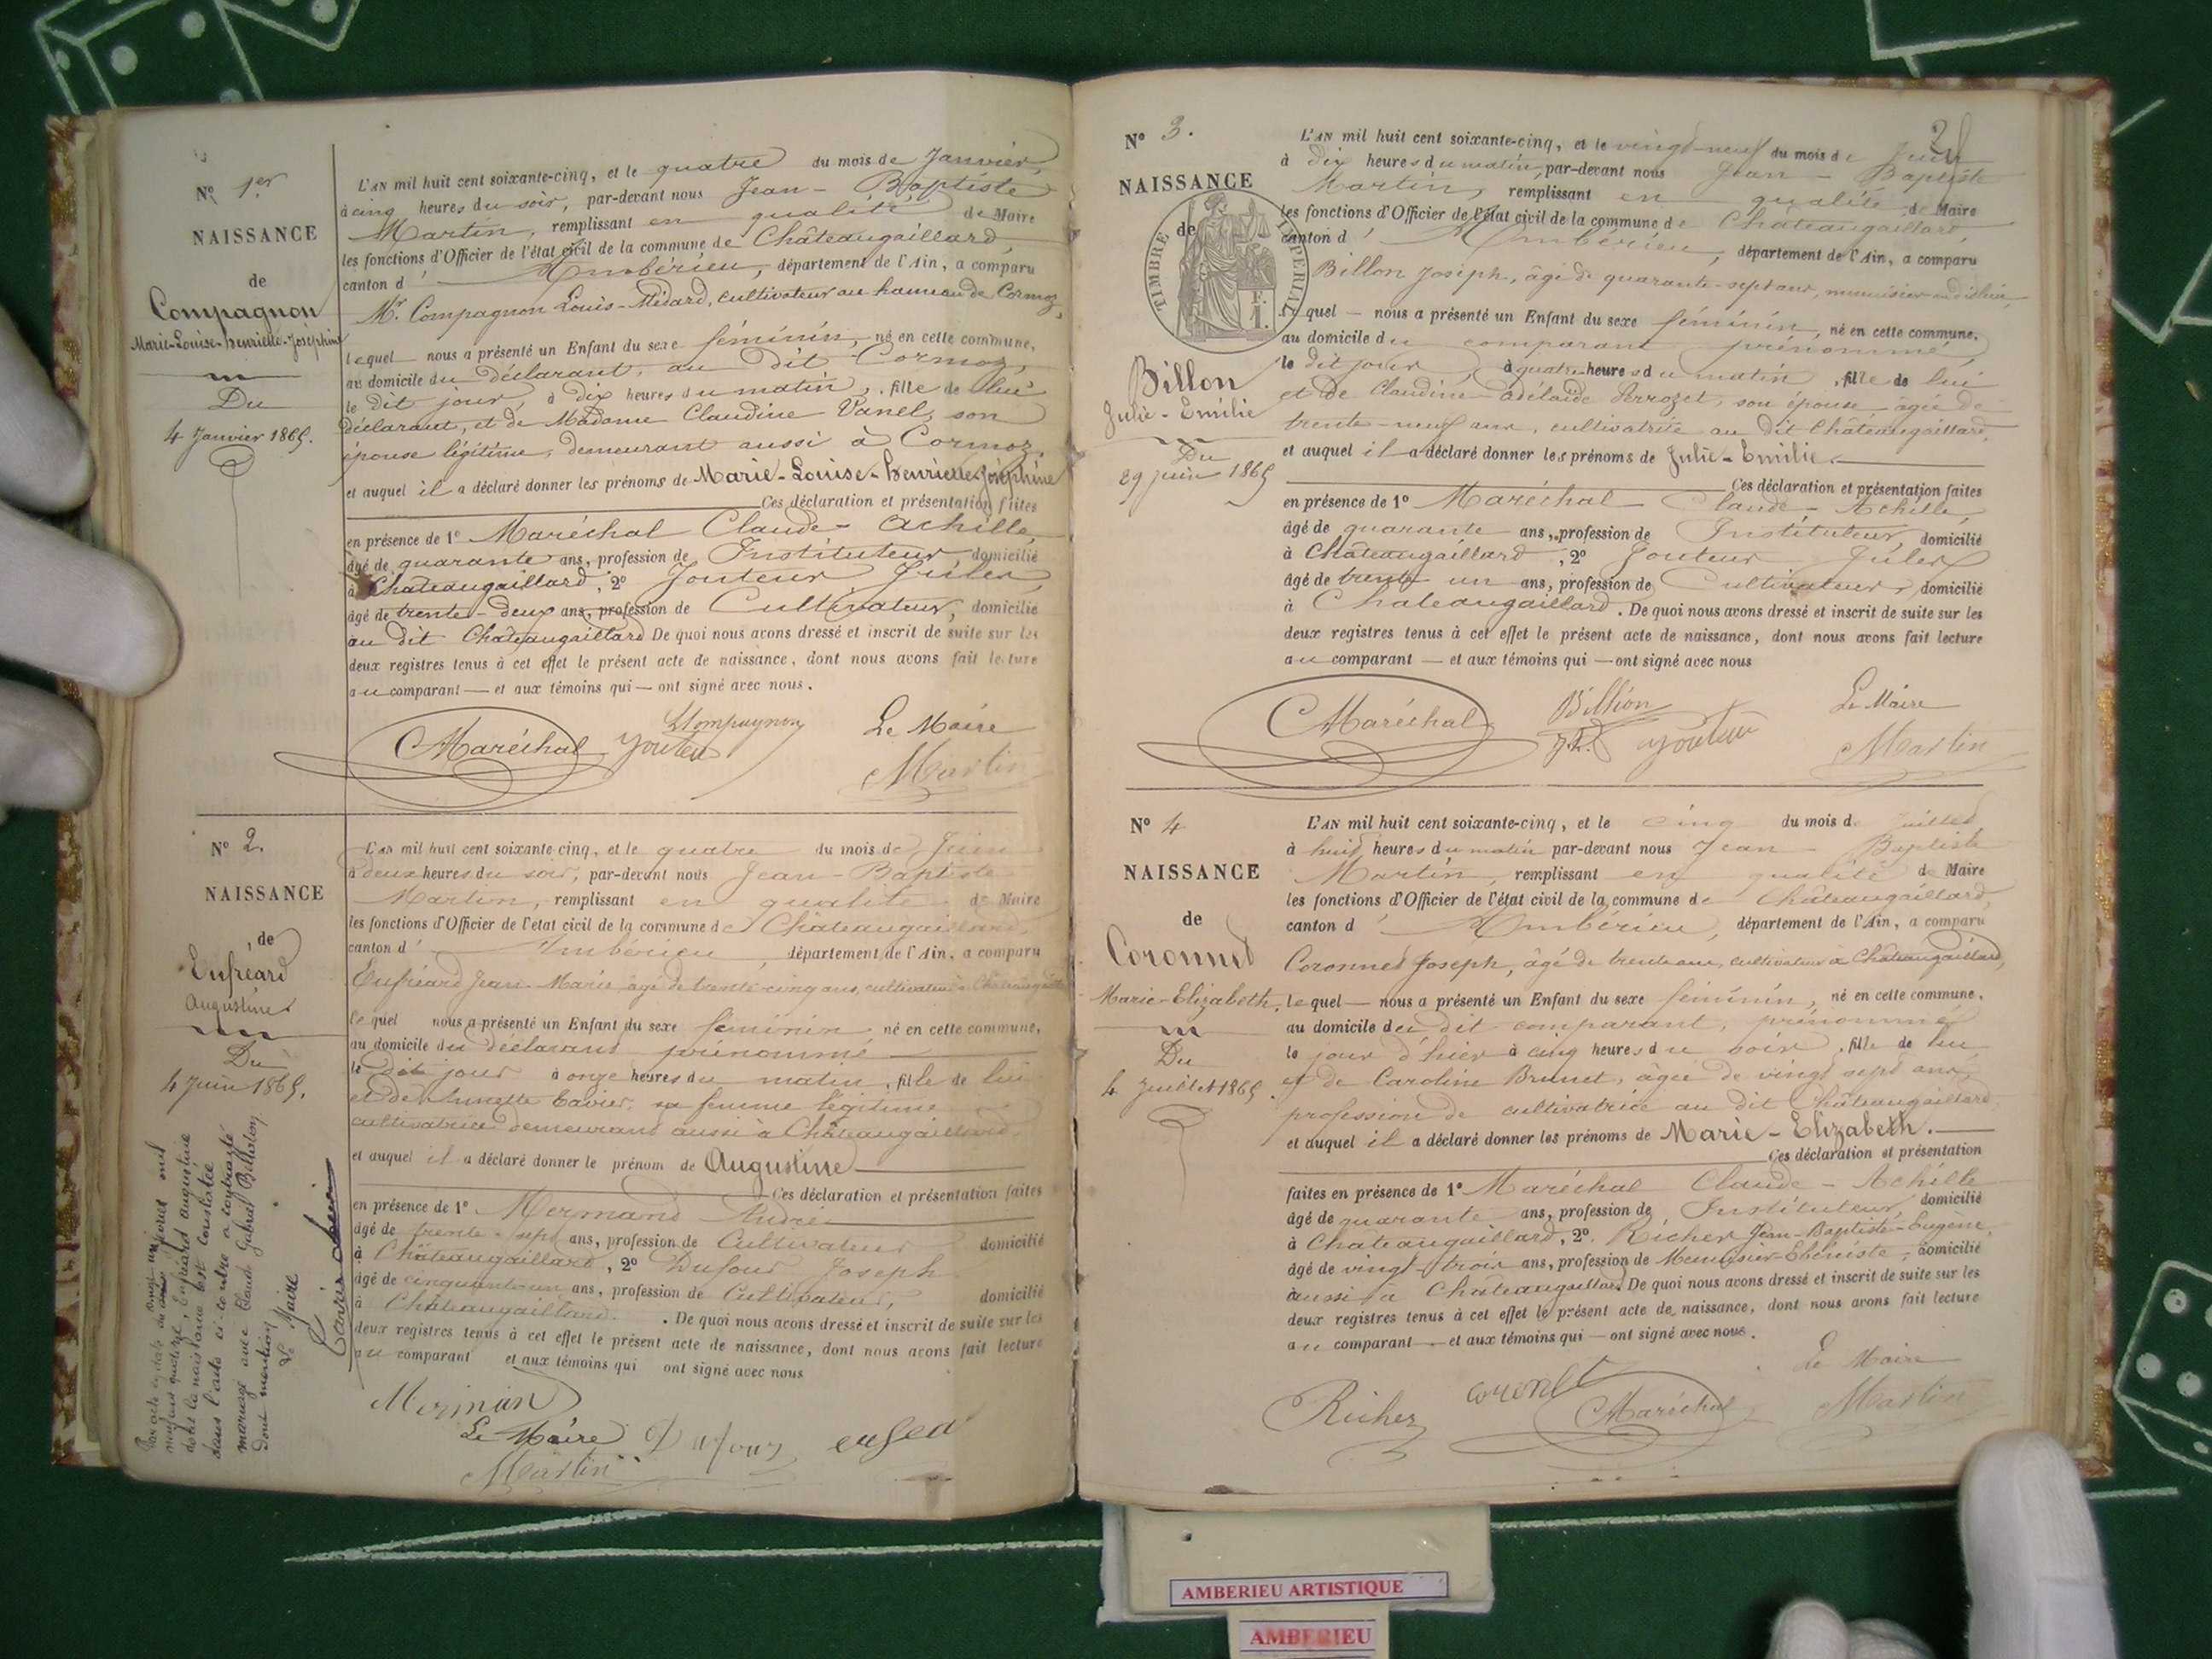 Nº 1er
NAISSANCE
de
Compagnon
Marie-Louise-henriette-Joséphine
Du
4 Janvier 1865.
L'AN mil huit cent soixante-cinq, et le quatre du mois de Janvier
à cinq heures du soir, par-devant nous Jean-Baptiste
Martin, remplissant en qualité de Maire
les fonctions d'Officier de l'état civil de la commune de Châteaugaillard,
canton d'Ambérieu, département de l'Ain, a comparu
Mr. Compagnon Louis-Médard, cultivateur au hameau de Cormoz,
lequel nous a présenté un Enfant du sexe féminin, né en cette commune,
au domicile du déclarant, au dit Cormoz,
le dit jour, à dix heures du matin, fille de lui
déclarant, et de Madame Claudine Vanel, son
épouse légitime, demeurant aussi à Cormoz.
et auquel il a déclaré donner les prénoms de Marie-Louise-henriette-Joséphine
Ces déclaration et présentation faites
en présence de 1º Maréchal Claude-Achille,
âgé de quarante ans, profession de Instituteur domicilié
à Châteaugaillard, 2º Jouteur Jules,
âgé de trente-deux ans, profession de Cultivateur, domicilié
au dit Châteaugaillard De quoi nous avons dressé et inscrit de suite sur les
deux registres tenus à cet effet le présent acte de naissance, dont nous avons fait lecture
au comparant — et aux témoins qui — ont signé avec nous.
Maréchal Jouteur LCompagnon Le Maire
Martin
Nº 2.
NAISSANCE
de
Enfréard
Augustine
Du
4 Juin 1865.
L'AN mil huit cent soixante-cinq, et le quatre du mois de Juin
à deux heures du soir, par-devant nous Jean-Baptiste
Martin, remplissant en qualité de Maire
les fonctions d'Officier de l'état civil de la commune de Châteaugaillard,
canton d'Ambérieu, département de l'Ain, a comparu
Enfréard Jean-Marie, âgé de trente-cinq ans, cultivateur à Châteaugaillard
lequel nous a présenté un Enfant du sexe féminin, né en cette commune,
au domicile du déclarant prénommé
le dit jour à onze heures du matin, fille de lui
et de Tavier, sa femme légitime
cultivatrice demeurant aussi à Châteaugaillard.
et auquel il a déclaré donner le prénom de Augustine
Ces déclaration et présentation faites
en présence de 1º Mermand André
âgé de trente-sept ans, profession de Cultivateur domicilié
à Châteaugaillard, 2º Dufour Joseph
âgé de cinquante-un ans, profession de Cultivateur, domicilié
à Châteaugaillard. De quoi nous avons dressé et inscrit de suite sur les
deux registres tenus à cet effet le présent acte de naissance, dont nous avons fait lecture
au comparant et aux témoins qui ont signé avec nous
Le Maire Dufour
Martin
Par acte en date du vingt un février mil
neuf cent quatorze, Enfréard augustine
dont la naissance est constatée
dans l'acte ci-contre a contracté
mariage avec Claude Gabriel Billion
Dont mention
Le Maire
Nº 3.
NAISSANCE
de
TIMBRE IMPÉRIAL
Billon
Julie-Emilie
Du
29 juin 1865
L'AN mil huit cent soixante-cinq, et le vingt-neuf du mois de Juin
à dix heures du matin, par-devant nous Jean-Baptiste
Martin, remplissant en qualité de Maire
les fonctions d'Officier de l'état civil de la commune de Châteaugaillard,
canton d'Ambérieu, département de l'Ain, a comparu
Billon Joseph, âgé de quarante-sept ans,
lequel — nous a présenté un Enfant du sexe féminin, né en cette commune,
au domicile du comparant prénommé,
le dit jour, à quatre heures du matin, fille de lui
et de Claudine-adélaïde Perrozet, son épouse âgée de
trente-neuf ans, cultivatrice au dit Châteaugaillard,
et auquel il a déclaré donner les prénoms de Julie-Emilie.
Ces déclaration et présentation faites
en présence de 1º Maréchal Claude-Achille,
âgé de quarante ans, profession de Instituteur, domicilié
à Châteaugaillard, 2º Jouteur Jules
âgé de trente un ans, profession de Cultivateur, domicilié
à Chateaugaillard. De quoi nous avons dressé et inscrit de suite sur les
deux registres tenus à cet effet le présent acte de naissance, dont nous avons fait lecture
au comparant — et aux témoins qui — ont signé avec nous
Maréchal Billion Jouteur Le Maire
Martin
Nº 4
NAISSANCE
de
Coronnet
Marie-Elizabeth.
Du
4 Juillet 1865.
L'AN mil huit cent soixante-cinq, et le cinq du mois de Juillet
à huit heures du matin par-devant nous Jean-Baptiste
Martin, remplissant en qualité de Maire
les fonctions d'Officier de l'état civil de la commune de Châteaugaillard,
canton d'Ambérieu, département de l'Ain, a comparu
Coronnet Joseph, âgé de trente ans, cultivateur à Châteaugaillard,
lequel — nous a présenté un Enfant du sexe féminin, né en cette commune,
au domicile du dit comparant, prénommé
le jour d'hier à cinq heures du soir, fille de lui
et de Caroline Brunet, âgée de vingt sept ans,
profession de cultivatrice au dit Châteaugaillard
et auquel il a déclaré donner les prénoms de Marie-Elizabeth.
Ces déclaration et présentation
faites en présence de 1º Maréchal Claude-Achille
âgé de quarante ans, profession de Instituteur, domicilié
à Chateaugaillard, 2º Richer Jean-Baptiste-Eugène,
âgé de vingt-trois ans, profession de Menuisier-Ebéniste, domicilié
aussi à Chateaugaillard De quoi nous avons dressé et inscrit de suite sur les
deux registres tenus à cet effet le présent acte de naissance, dont nous avons fait lecture
au comparant — et aux témoins qui — ont signé avec nous.
Richer Maréchal Le Maire
Martin
AMBERIEU ARTISTIQUE
AMBERIEU